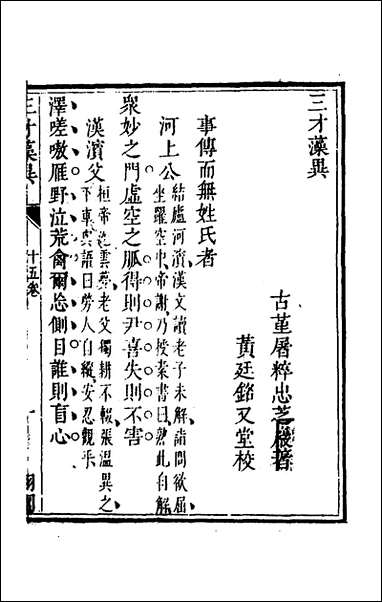 三才藻異
古堇屠粹忠芝巖著
黃廷銘又堂校
事傳而無姓氏者
河上公結廬河濱漢文讀老子未解請問欲屈
坐躍空中帝謝乃授素書曰熟此自解
衆妙之門虛空之脈得則尹喜失則不害
漢濱父桓帝幸雲夢老父獨耕不輟張溫異之
下車與語曰勞人自縱安忍觀乎
澤嗟嗷雁野泣荒禽爾怂側目誰則盲心
三才藻異
十五卷
一